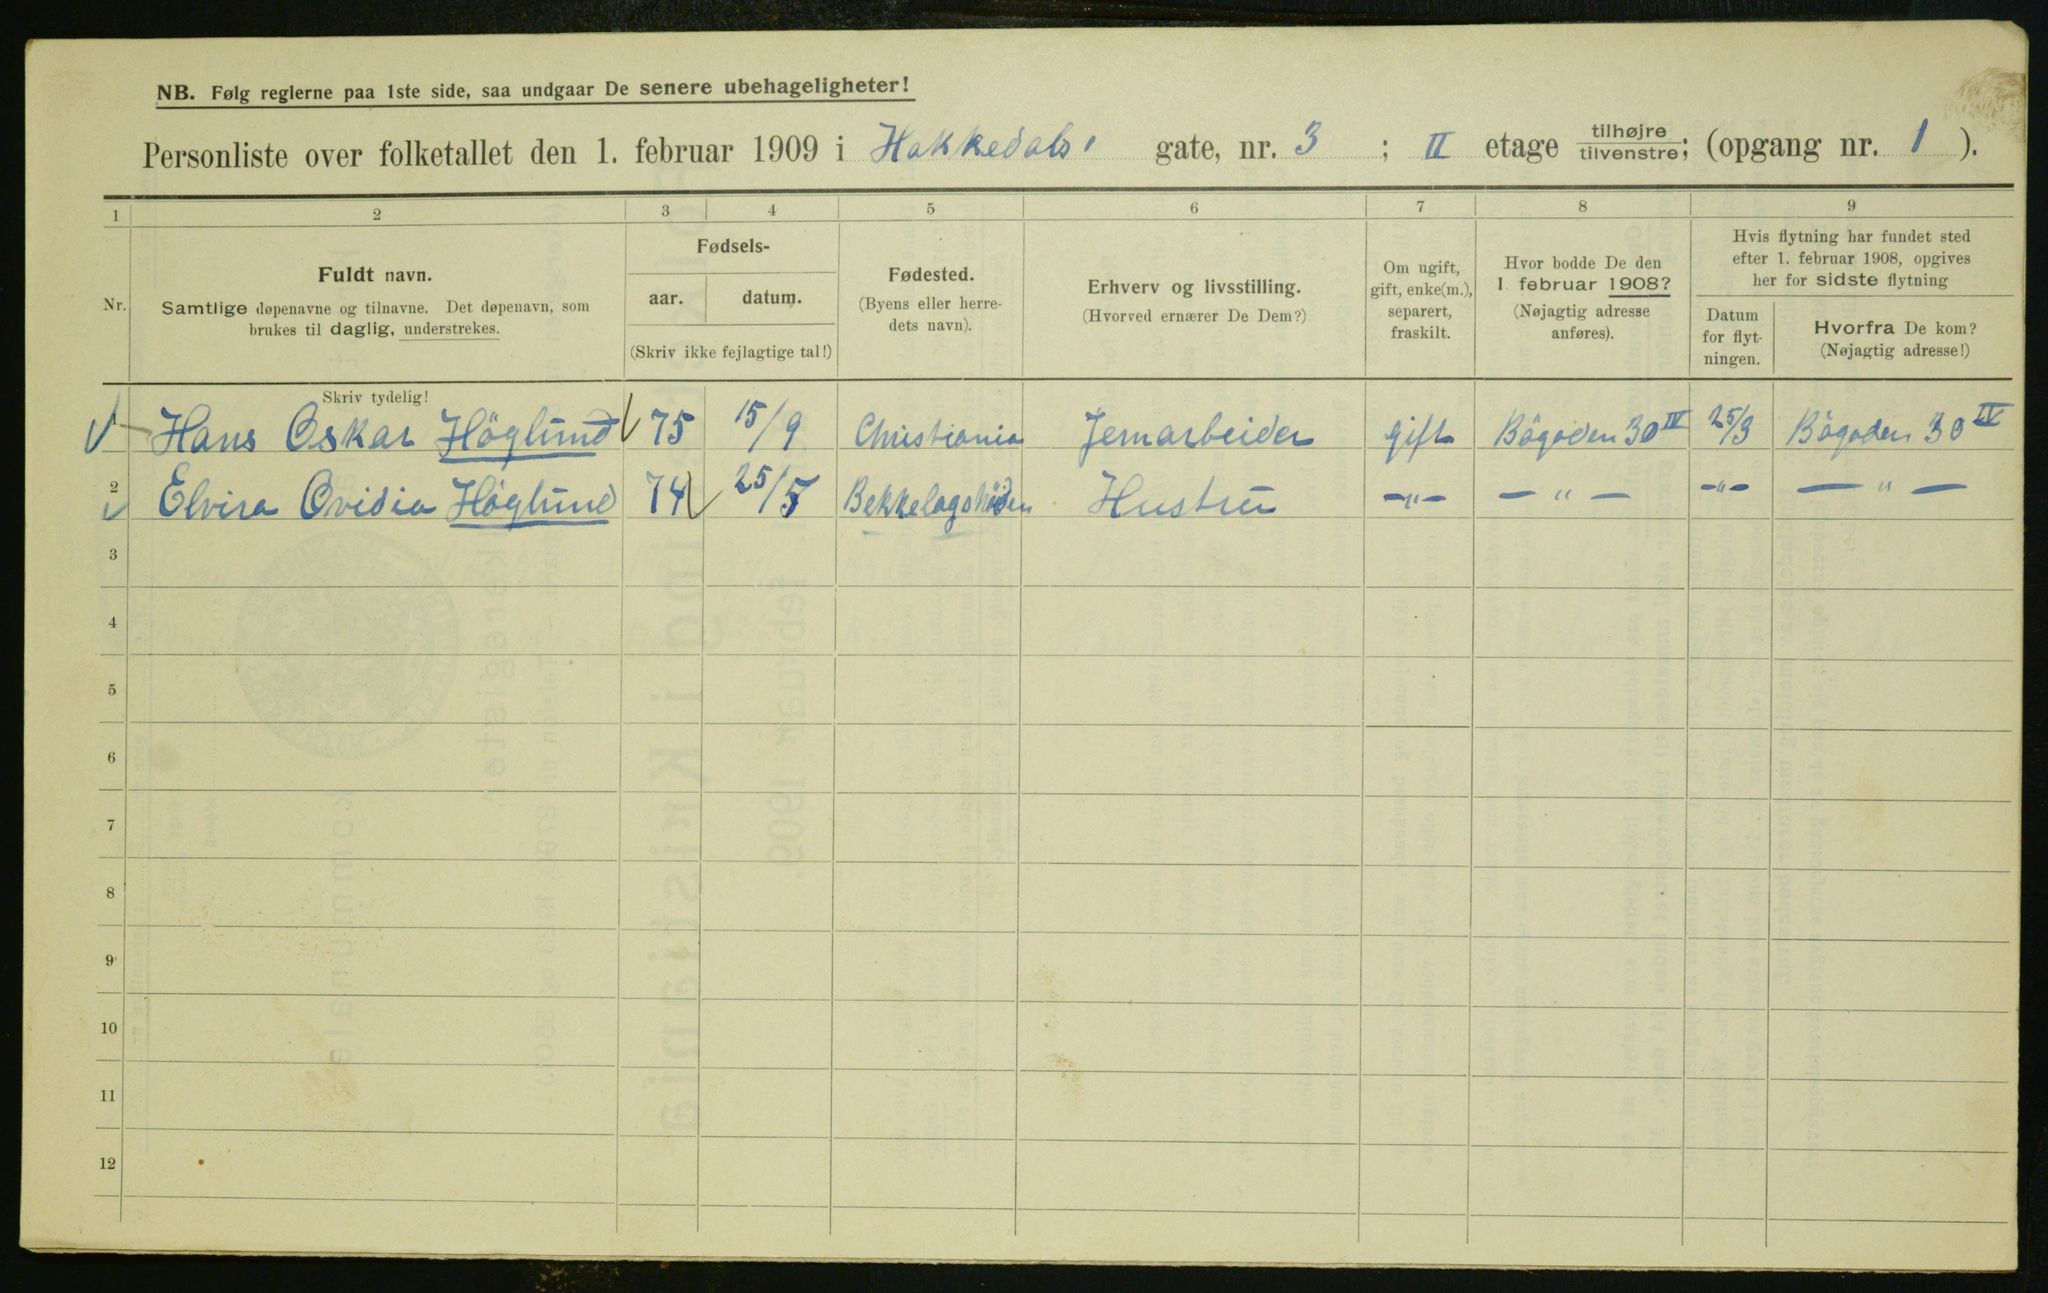 NB. Følg reglerne paa 1ste side, saa undgaar De senere ubehageligheter!
Personliste over folketallet den 1. februar 1909 i Hakkedals gate, nr. 3 ; II etage tilhøjre tilvenstre; (opgang nr. 1 ).
1 2 3 4 5 6 7 8 9
Nr.
Fuldt navn.
Samtlige døpenavne og tilnavne. Det døpenavn, som
brukes til daglig, understrekes.
Fødsels-
aar. datum.
(Skriv ikke fejlagtige tal!)
Fødested.
(Byens eller herre-
dets navn).
Erhverv og livsstilling.
(Hvorved ernærer De Dem?)
Om ugift,
gift, enke(m.),
separert,
fraskilt.
Hvor bodde De den
1. februar 1908?
(Nøjagtig adresse
anføres).
Hvis flytning har fundet sted
efter 1. februar 1908, opgives
her for sidste flytning
Datum
for flyt-
ningen.
Hvorfra De kom?
(Nøjagtig adresse!)
Skriv tydelig!
Hans Oskar Höglund 75 15/9 Christiania Jernarbeider gift Bögaden 30 IV 25/3 Bögaden 30 IV
2 Elvira Ovidia Höglund 74 25/5 Bekkelagshöiden Hustru —„— — „ — —„— — „ —
3
4
5
6
7
8
9
10
11
12